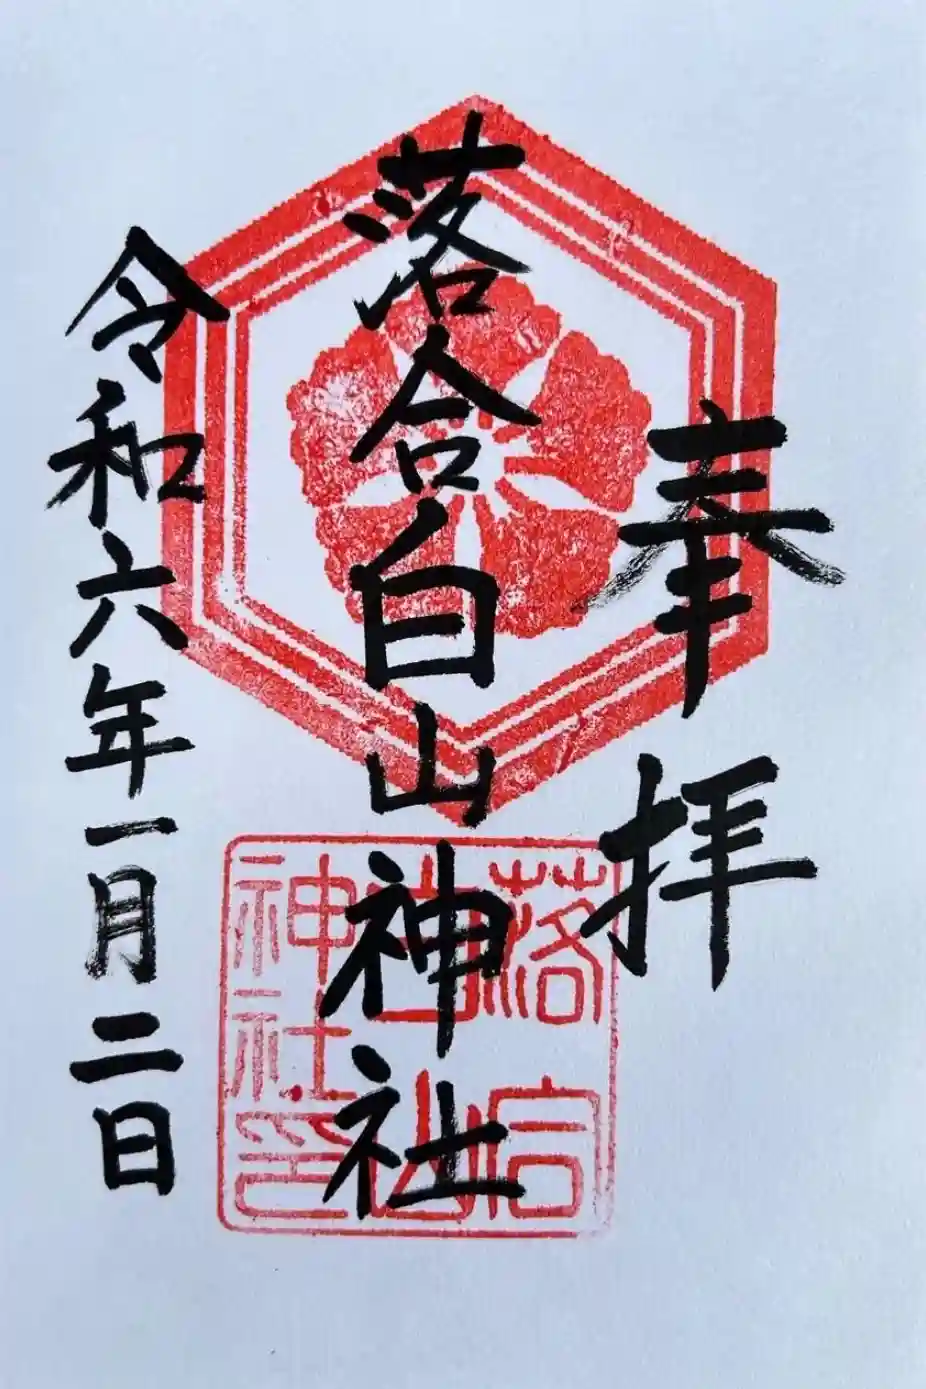 奉拝
落合白山神社
令和六年一月二日
落合
白山
神社印